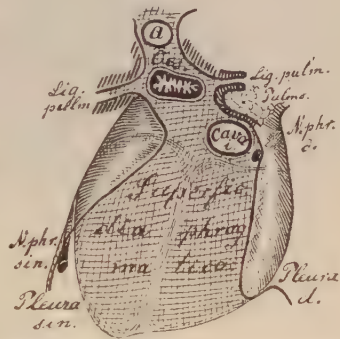 a
Oes.
Lig.
pulm
Lig. pulm.
Pulmo.
N. phr.
d.
Cava
i
Superfic
illa phrag
ma tica
N. phr.
sin.
Pleura
sin.
Pleura
d.